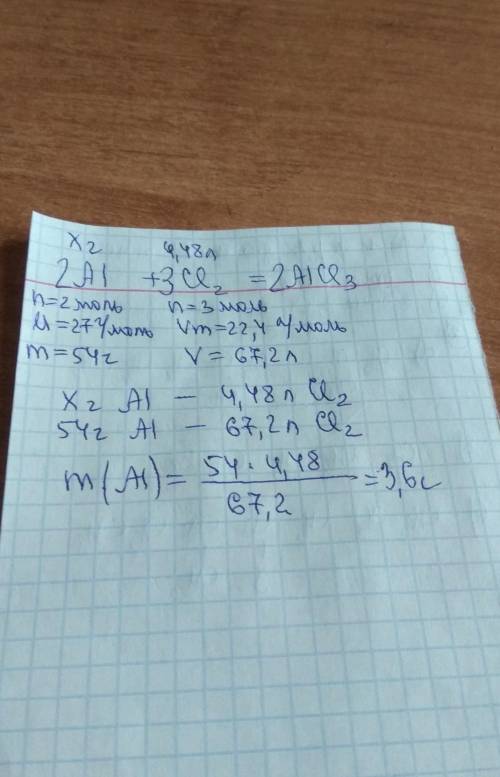 xг 4,48л
2Al + 3Cl₂ = 2AlCl₃
n=2моль n=3моль
M=27г/моль Vm=22,4 л/моль
m=54г V=67,2л
xг Al – 4,48л Cl₂
54г Al – 67,2л Cl₂
m(Al)= 54·4,48 / 67,2 =3,6г